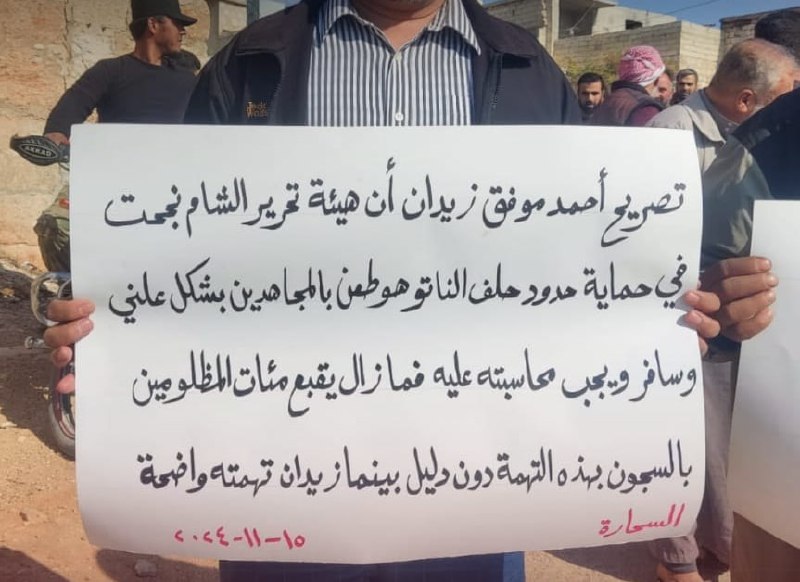 تصريح أحمد موفق زيدان أن هيئة تحرير الشام نجحت
في حماية حدود حلف الناتو هو طعن بالمجاهدين بشكل علني
وسافر ويجب محاسبته عليه فما زال يقبع مئات المظلومين
بالسجون بهذه التهمة دون دليل بينما زيدان تهمته واضحة
السحارة
١٥-١١-٢٠٢٤